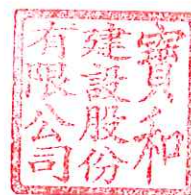 寶和
建設股份
有限公司